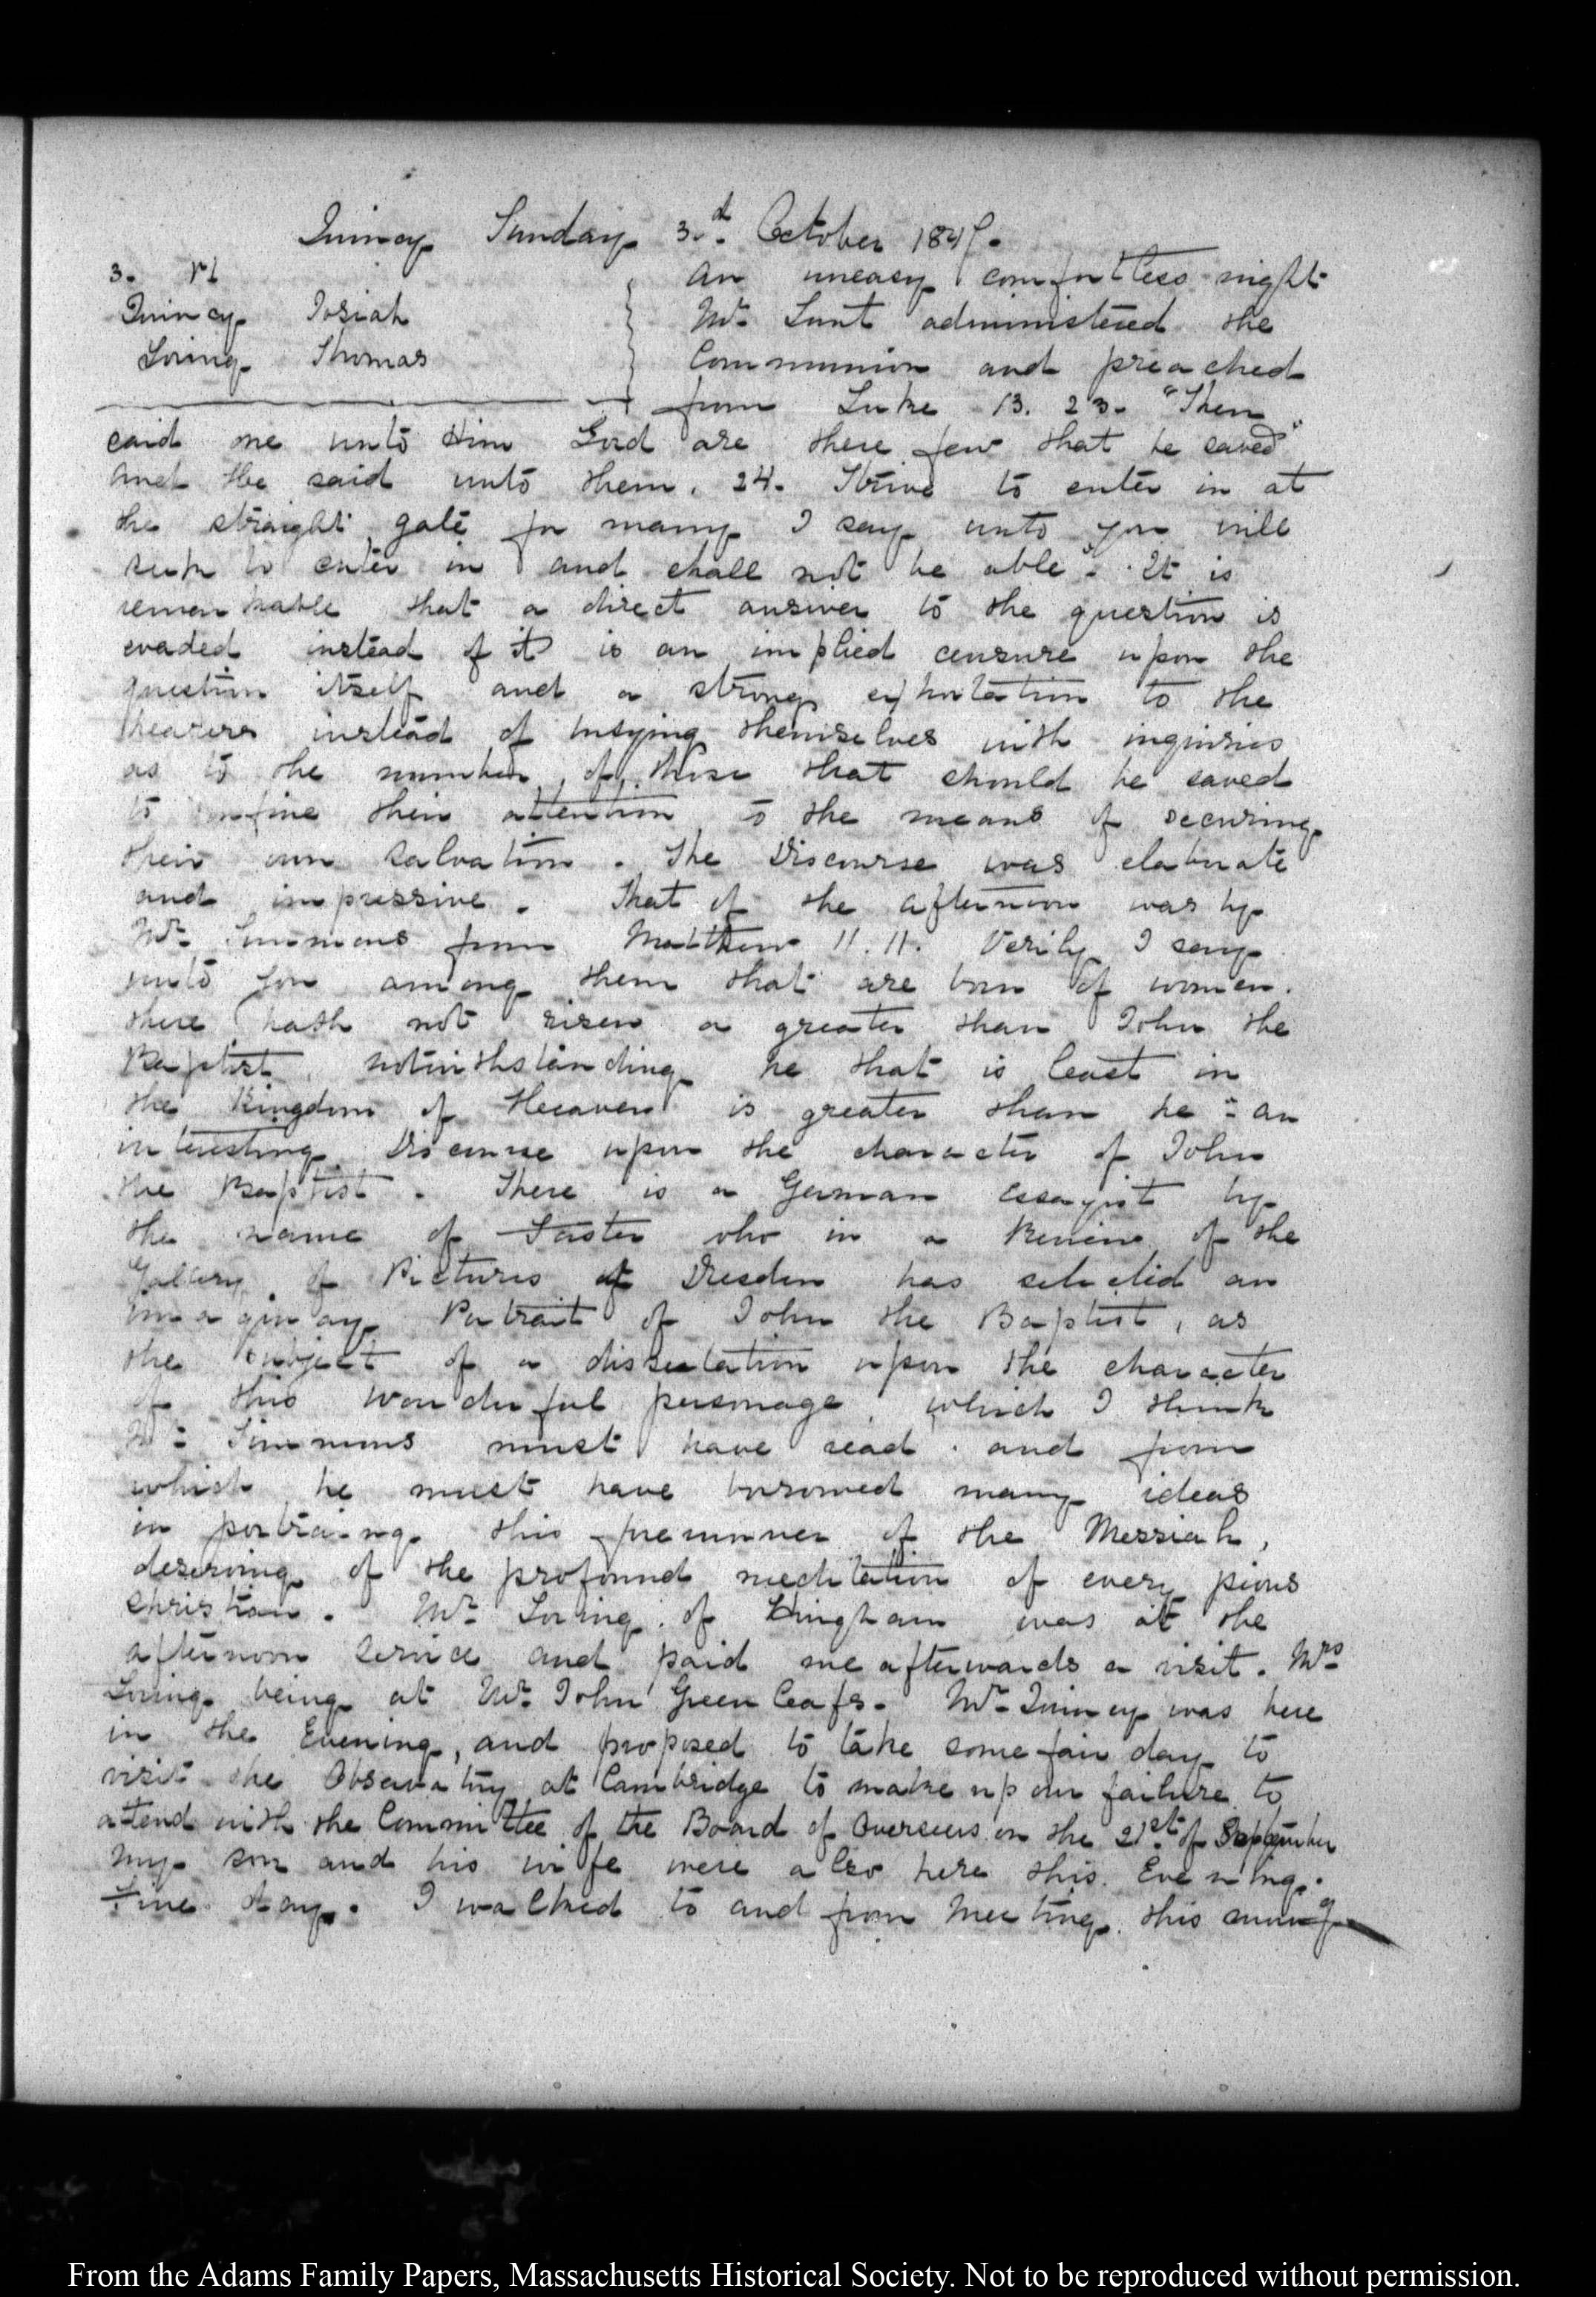 Quincy Sunday 3.d October 1847.
3. VI
Quincy Josiah
Loring Thomas
An uneasy comfortless night
Mr. Lunt administered the
Communion and preached
from Luke 13. 23. "Then
said one unto Him Lord are there few that be saved"
And He said unto them. 24. Strive to enter in at
the straight gate for many I say unto you will
seek to enter in and shall not be able". It is
remarkable that a direct answer to the question is
evaded instead of it is an implied censure upon the
question itself and a strong exhortation to the
hearers instead of busying themselves with inquiries
as to the number of those that should be saved
to confine their attention to the means of securing
their own salvation. The Discourse was elaborate
and impressive. That of the afternoon was by
Mr. Simmons from Matthew 11. 11. Verily I say
unto you among them that are born of women.
there hath not risen a greater than John the
Baptist, notwithstanding he that is least in
the Kingdom of Heaven is greater than he" an
interesting Discourse upon the character of John
the Baptist. There is a German essayist by
the name of who in a Review of the
Gallery of Pictures at Dresden has selected an
imaginary Portrait of John the Baptist, as
the subject of a dissertation upon the character
of this wonderful personage, which I think
Mr. Simmons must have read. and from
which he must have borrowed many ideas
in portraing this forerunner of the Messiah,
deserving of the profound meditation of every pious
Christian. Mr. Loring of Hingham was at the
afternoon service and paid me afterwards a visit. Mrs
Loring being at Mr. John Greenleafs. Mr. Quincy was here
in the Evening, and proposed to take some fair day to
visit the Observatory at Cambridge to make up our failure to
attend with the Committee of the Board of Overseers on the 21st of September
My son and his wife were also here this Evening.
Fine day. I walked to and from Meeting this morng
From the Adams Family Papers, Massachusetts Historical Society. Not to be reproduced without permission.